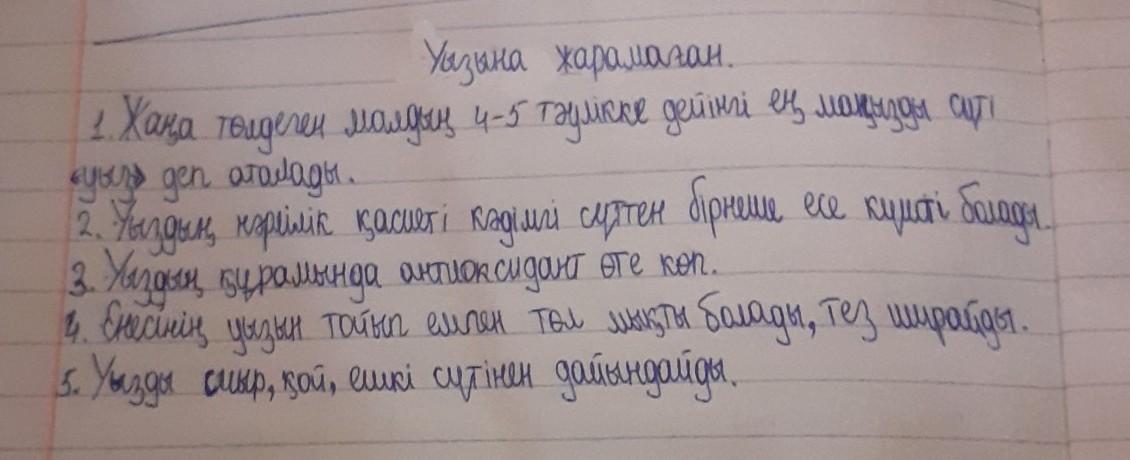 Уызына жарамаған.
1. Жаңа төлдеген малдың 4-5 тәулікке дейінгі ең маңызды сүті
«уыз» деп аталады.
2. Уыздың нәрлілік қасиеті кәдімгі сүттен бірнеше есе күшті болады.
3. Уыздың құрамында антиоксидант өте көп.
4. Енесінің уызын тойып емген төл мықты болады, тез ширайды.
5. Уызды сиыр, қой, ешкі сүтінен дайындайды.